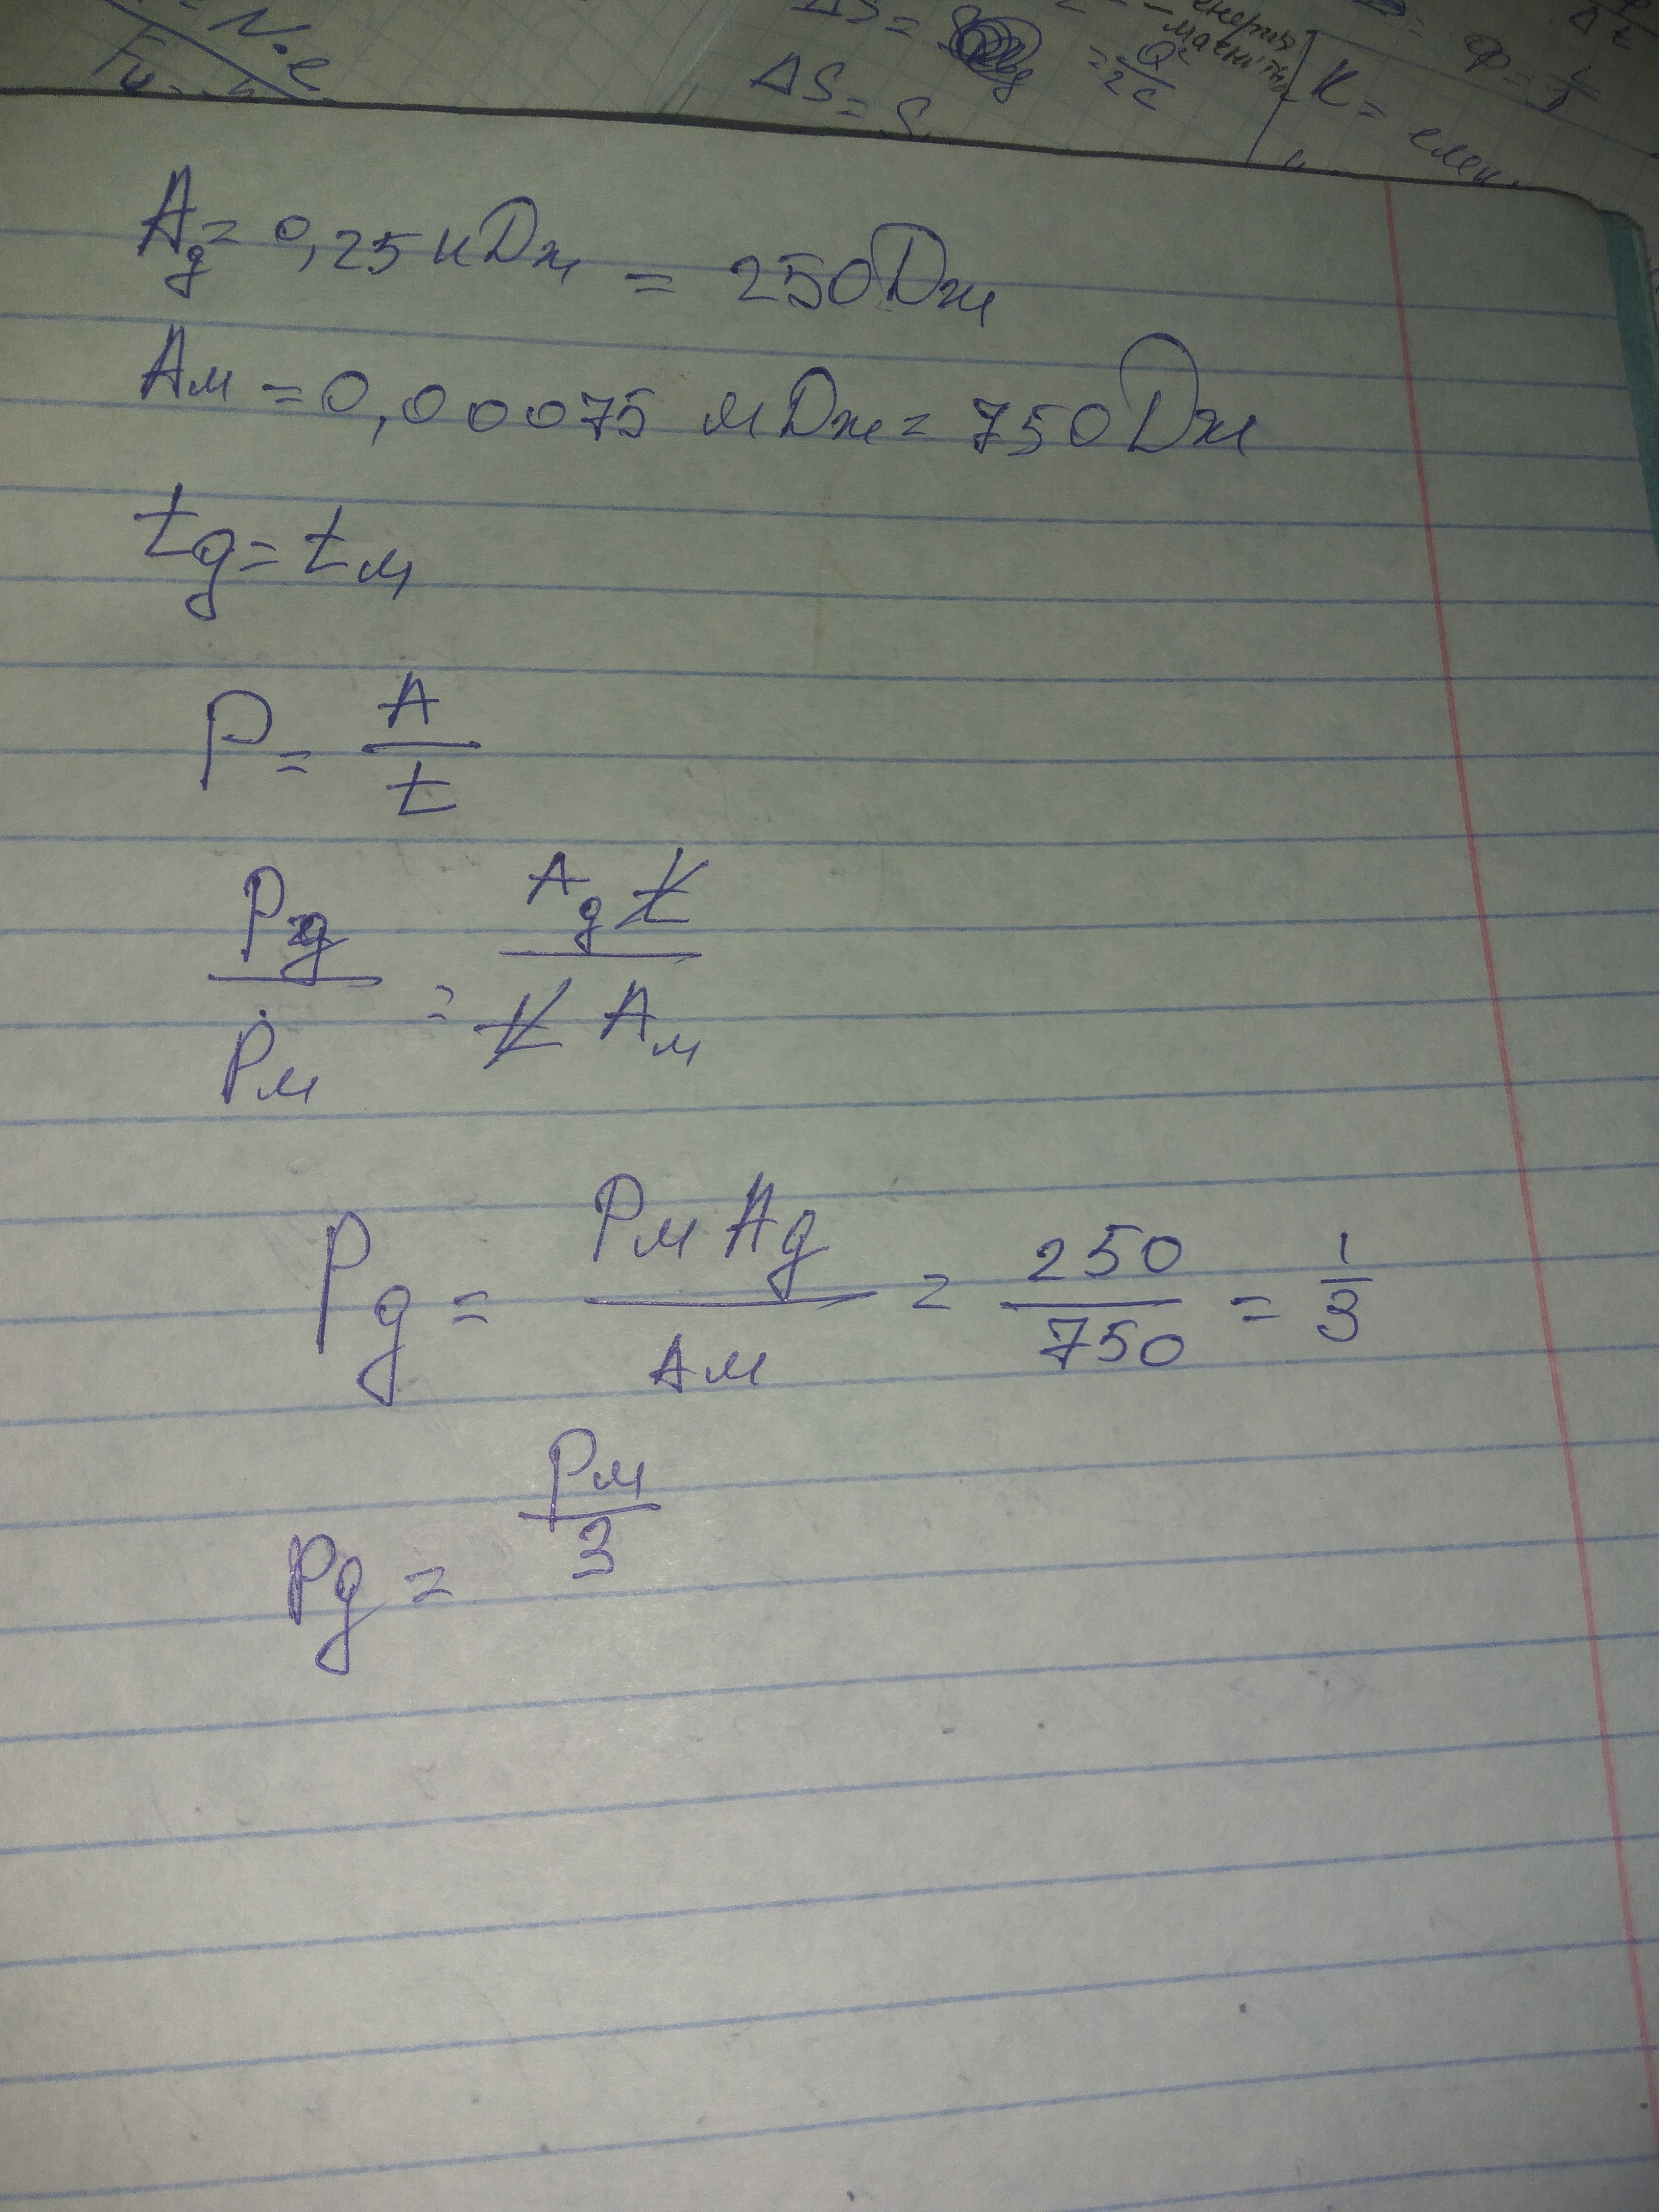 N·e
ΔS =
ΔS = S
= Q²/2c
K =
φ =
Aд = 0,25 кДж = 250 Дж
Aм = 0,00075 мДж = 750 Дж
tд = tм
P = A/t
Pд/Pм = Aд t/t Aм
Pд = Pм Aд/Aм = 250/750 = 1/3
Pд = Pм/3